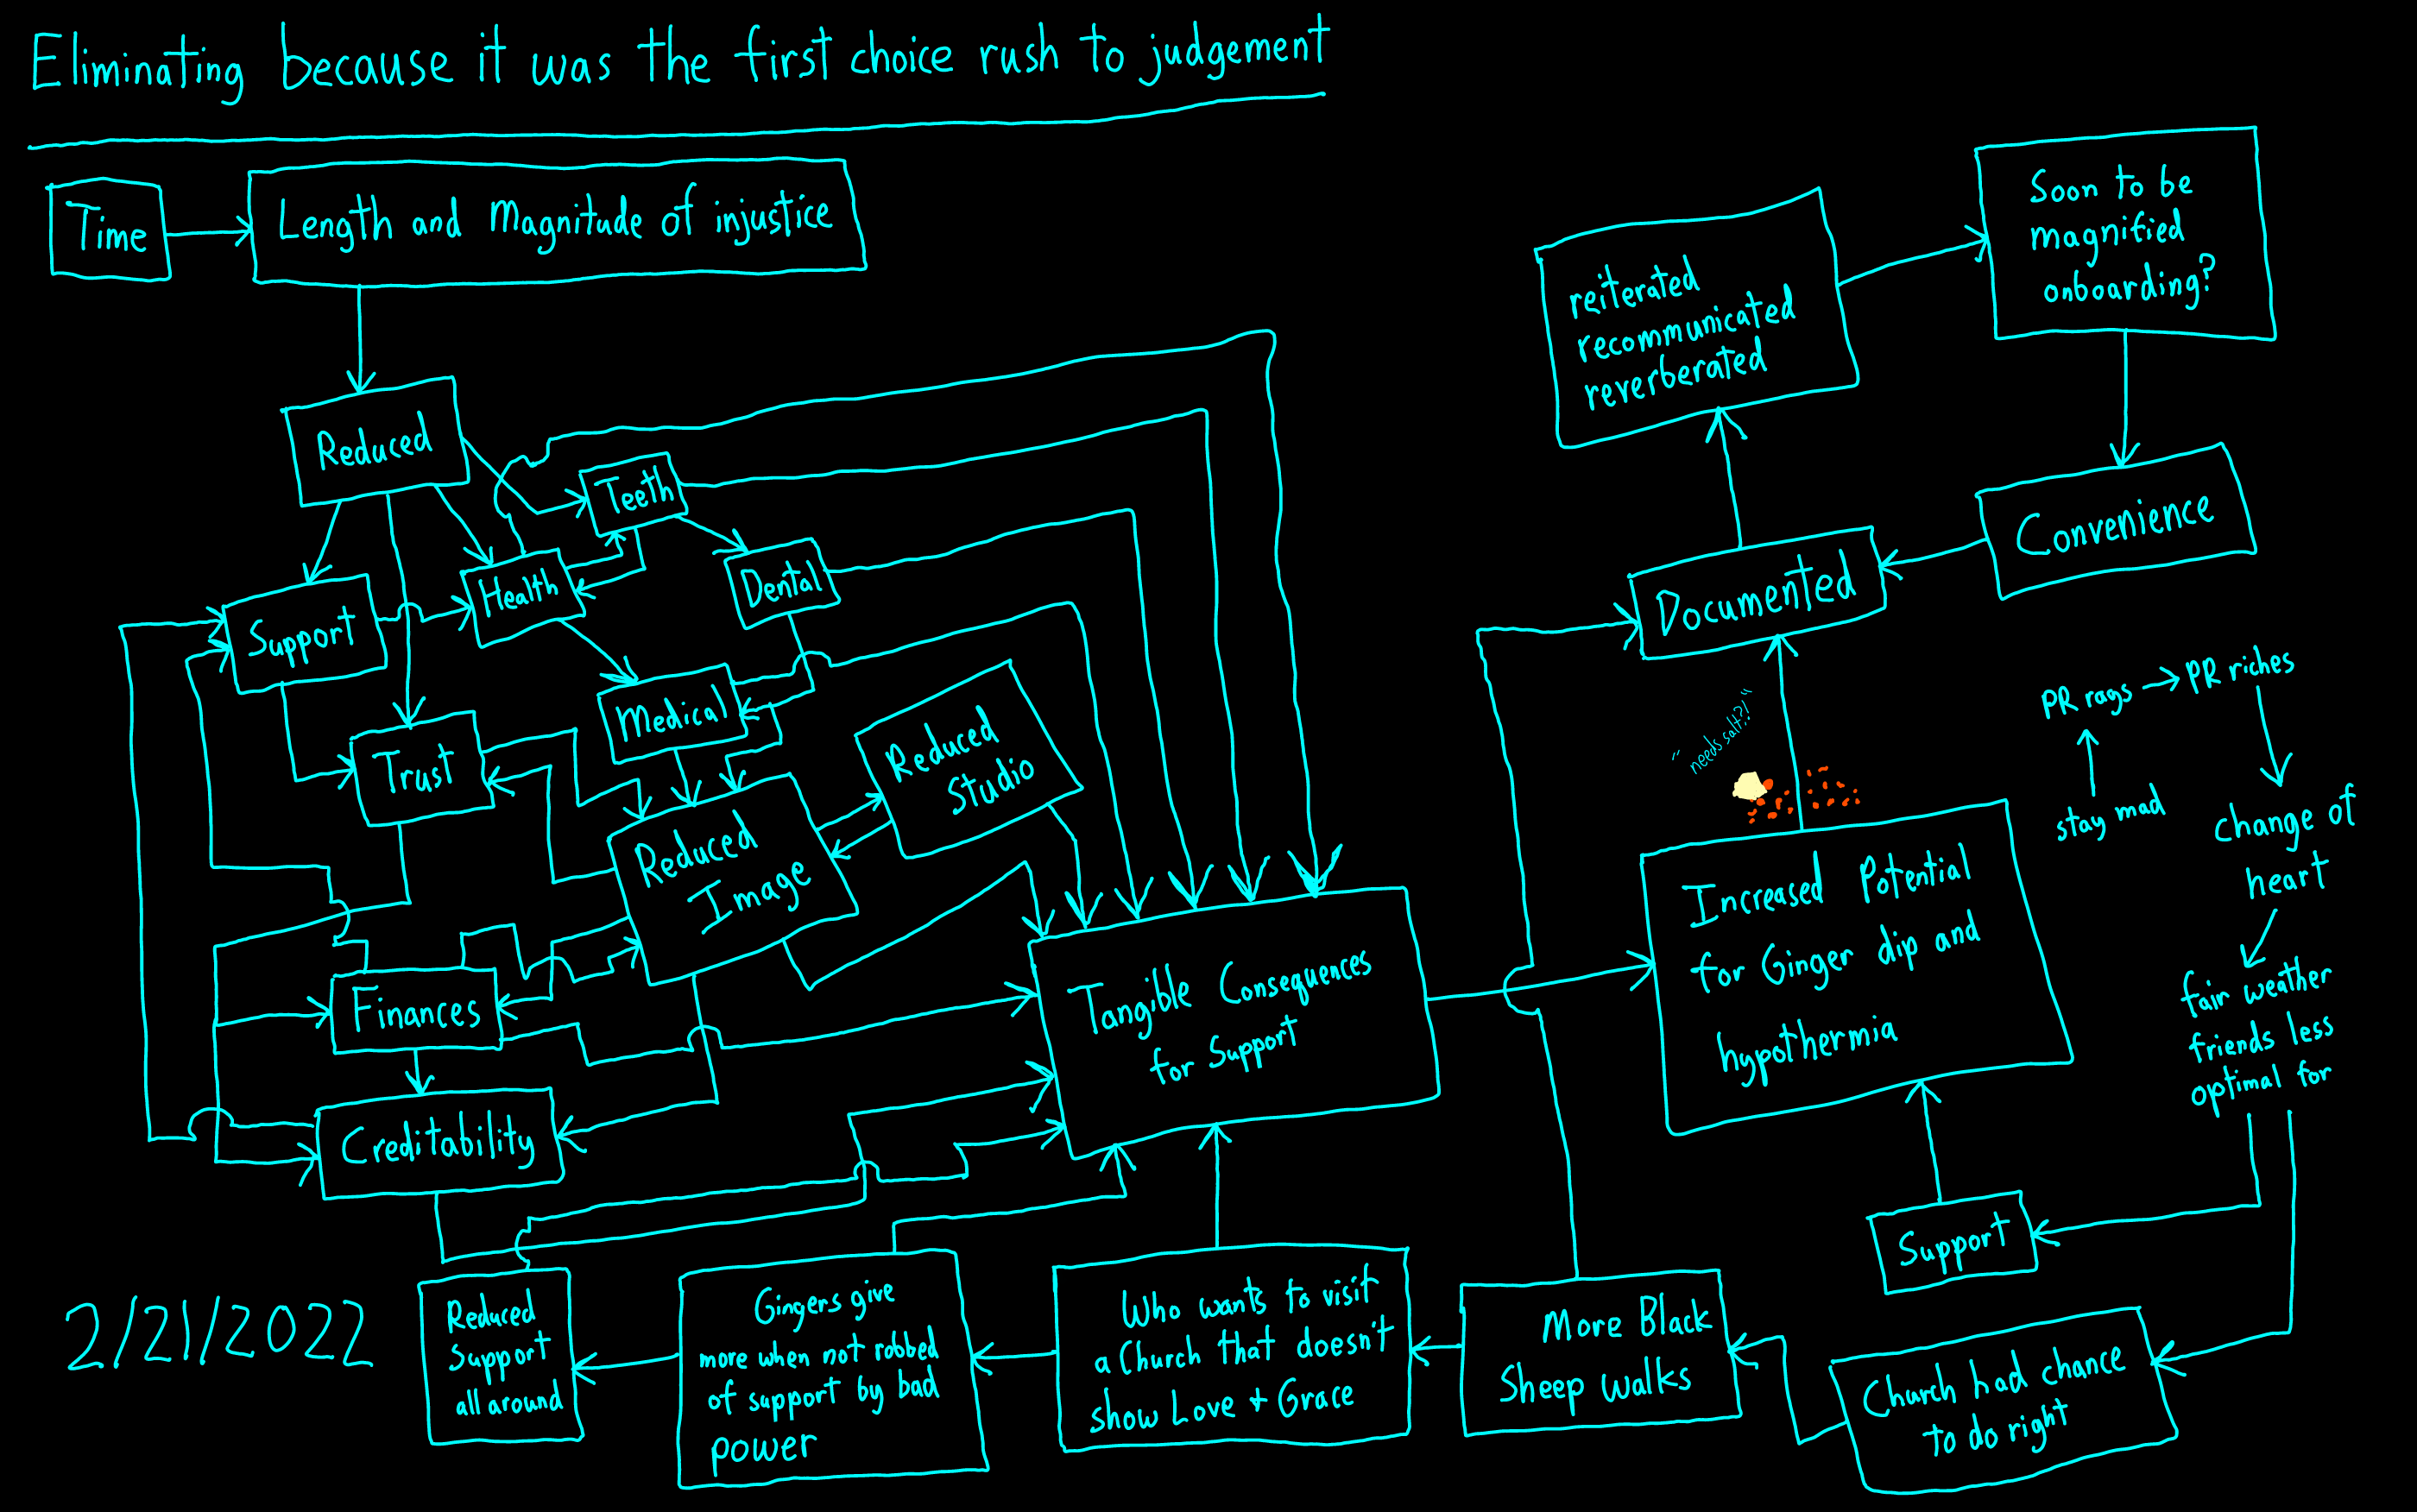 Eliminating because it was the first choice rush to judgement
Time
Length and Magnitude of injustice
Reduced
Teeth
Health
Dental
Support
Medical
Trust
Reduced
Studio
Reduced
Image
Finances
Creditability
Tangible Consequences
for Support
reiterated
recommunicated
reverberated
Soon to be
magnified
onboarding?
Convenience
Documented
"needs salt?!"
PR rags
PR riches
stay mad
change of
heart
fair weather
friends less
optimal for
Increased Potential
for Ginger dip and
hypothermia
Support
Church had chance
to do right
More Black
Sheep walks
Who wants to visit
a Church that doesn't
show Love + Grace
Gingers give
more when not robbed
of support by bad
power
Reduced
Support
all around
2/21/2022